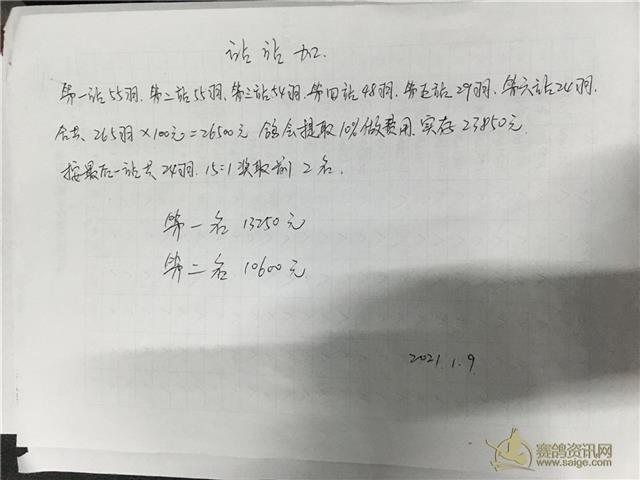 站站加.
第一站55羽.第二站55羽.第三站54羽.第四站48羽.第五站29羽.第六站24羽.
合共265羽×100元=26500元 鸽会提取10%做费用.实存23850元.
按最后一站共24羽.15:1奖取前2名.
第一名 13250元
第二名 10600元
2021.1.9
赛鸽资讯网
www.saige.com